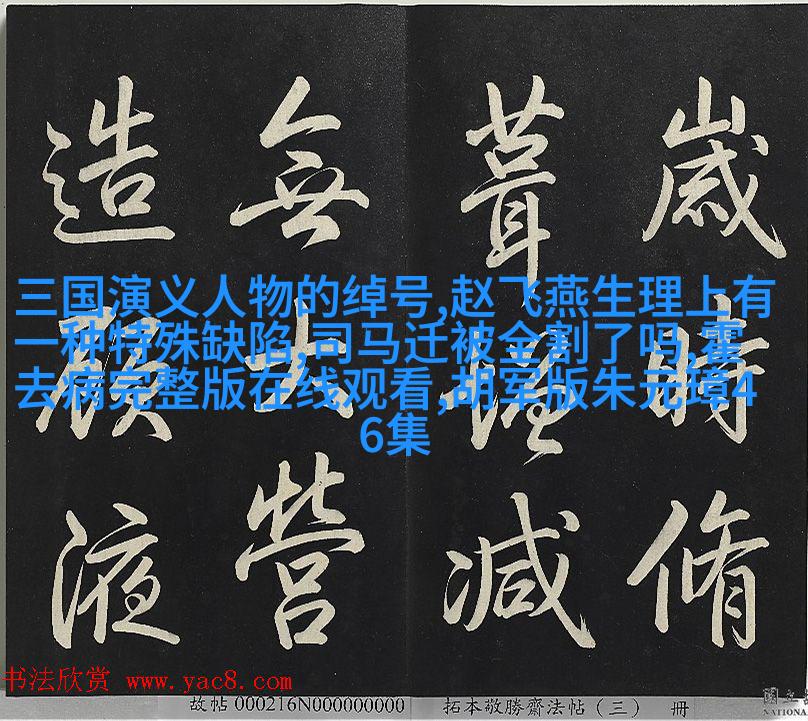 歲時脩
葺增減
無營
造顧液
三国演义人物的绰号,赵飞燕生理上有
一种特殊缺陷,司马迁被全割了吗,霍
去病完整版在线观看,胡军版朱元璋4
6集
书法欣赏 www.yac8.com
故帖000216N000000000 拓本敬勝齋法帖（三） 冊
國立
NATIONA